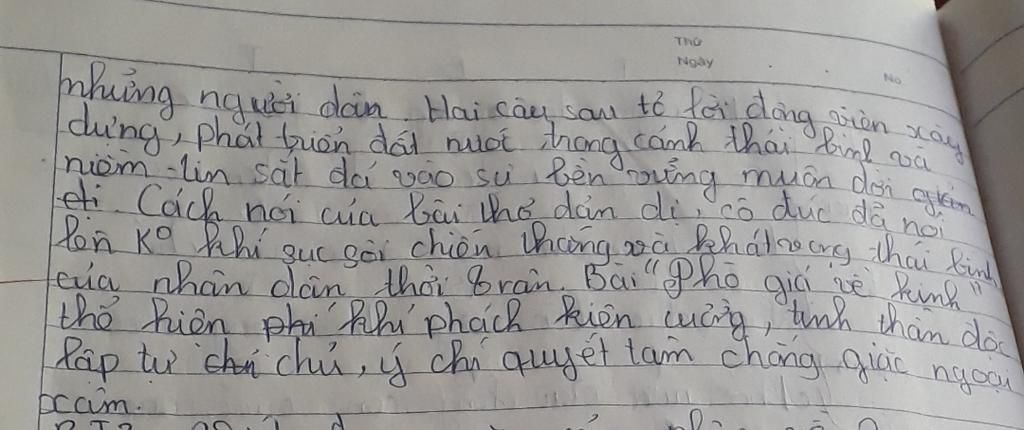 Thứ
Ngày
No
những người dân. Hai câu sau tỏ lời động viên xây
dựng, phát triển đất nước trong cảnh thái bình và
niềm tin sắt đá vào sự bền vững muôn đời
Cách nói của bài thơ dản dị, cô đúc đã nói
lên K° khí sục sôi chiến thắng và khát vọng thái bình
của nhân dân thời Trần. Bài "Phò giá về kinh"
thở hiện phí khí phách kiên cường, tinh thần độc
lập tự chủ, ý chí quyết tâm chống giặc ngoại
xâm.